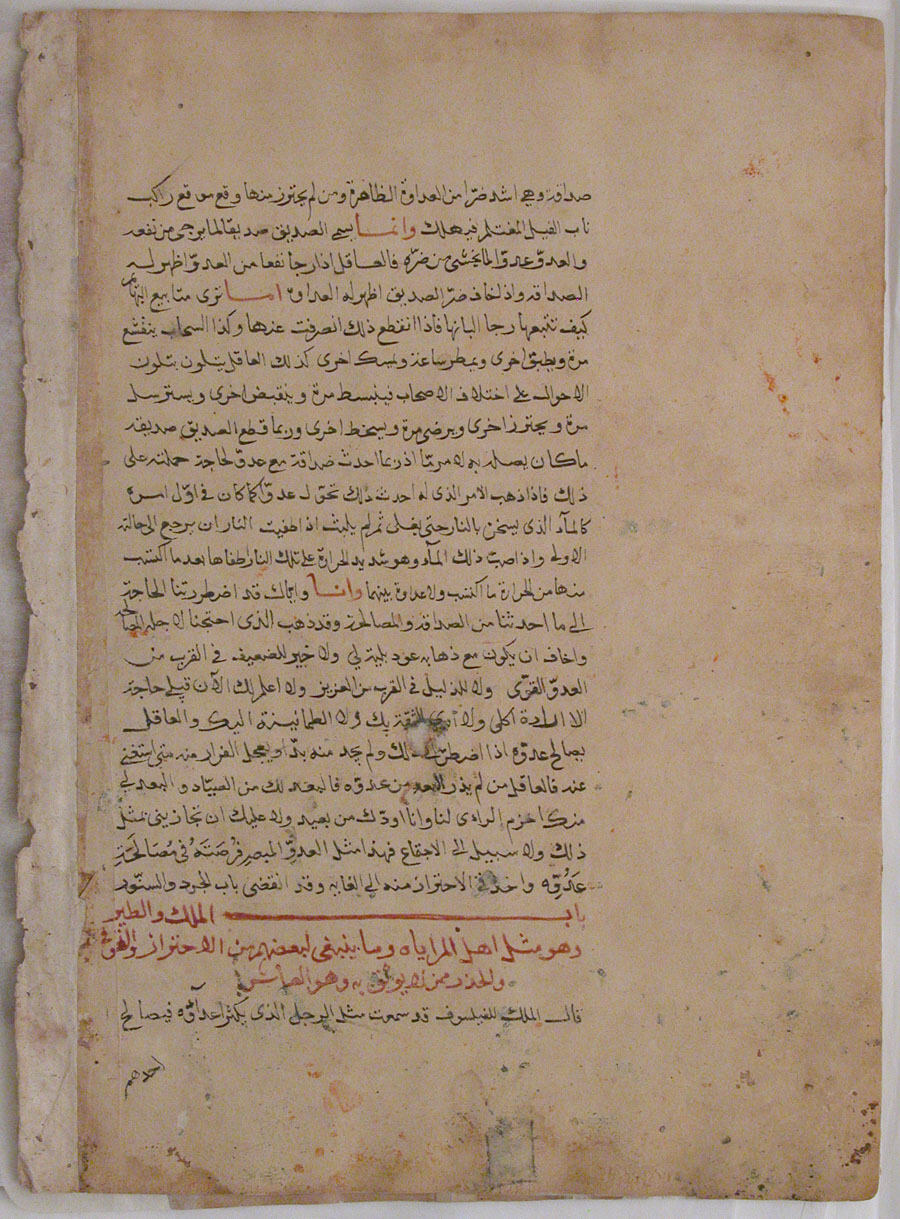 صداقة وهي اشد ضرّا من العداوة الظاهرة ومن لم يحترز منها وقع موقع راكب
ناب الفيل المغتلم فيهلك وانما يسمى الصديق صديقا لما يرجى من نفعه
والعدوّ عدوّا لما يخشى من ضرّه فالعاقل اذا رجا نفعا من العدوّ اظهر له
الصداقة واذا خاف ضرّ الصديق اظهر له العداوة اما ترى متابيع البهائم
كيف تتبعها رجا البانها فاذا انقطع ذلك انصرفت عنها وكذا السحاب ينقشع
مرة ويطبق اخرى ويمطر ساعة ويمسك اخرى كذلك العاقل يتلون بتلون
الاحوال على اختلاف الاصحاب فينبسط مرة وينقبض اخرى ويسترسل
مرة ويحترز اخرى ويرضى مرة ويسخط اخرى وربما قطع الصديق صديقه
ما كان يصله به لامر ربما احدث صداقة مع عدوّ لحاجة حملته على
ذلك فاذا ذهب الامر الذى له احدث ذلك تحوّل عدوّا كما كان فى اوّل امره
كالمآء الذى يسخن بالنار حتى يغلى ثم لم يلبث اذا طفيت النار ان يرجع الى حالته
الاولى واذا صبّ ذلك المآء وهو شديد الحرارة على تلك النار اطفاها بعدما اكتسب
منها من الحرارة ما اكتسب ولا عداوة بينهما وانا واياك قد اضطررتنا الحاجة
الى ما احدثنا من الصداقة والمصالحة وقد ذهب الذى احتجنا لاجله
واخاف ان يكون مع ذهابه عود بلية لى ولا خير للضعيف فى القرب من
العدوّ القوّى ولا للذليل فى القرب من العزيز ولا اعلم لك الآن قبلى حاجة
الا ارادة اكلى ولا ارى الثقة بك ولا الطمانينة اليك والعاقل
يصالح عدوّه اذا اضطرّ الى ذلك ولم يجد منه بدّا ويعجل الفرار منه متى استغنى
عنه فالعاقل من لم يذر البعد من عدوّه فالبعد لك من الصيّاد والبعد لى
منك احزم الراى لنا وانا اودّك من بعيد ولا عليك ان تجازينى بمثل
ذلك ولا سبيل الى الاجتماع فهذا مثل العدوّ المبصر فُرصَتَهُ فى مُصَالَحَةِ
عَدُوّه واخذ فى الاحتراز منه الى الغاية وقد انقضى باب الجرد والسنّور
باب الملك والطير
وهو مثل اهل المراياه وما ينبغى لبعضهم من الاحتراز والخوف
والحذر ممن لا يوثق به وهو العاشر
قال الملك للفيلسوف قد سمعت مثل الرجل الذى يكثر اعدآؤه فيصالح
احدهم